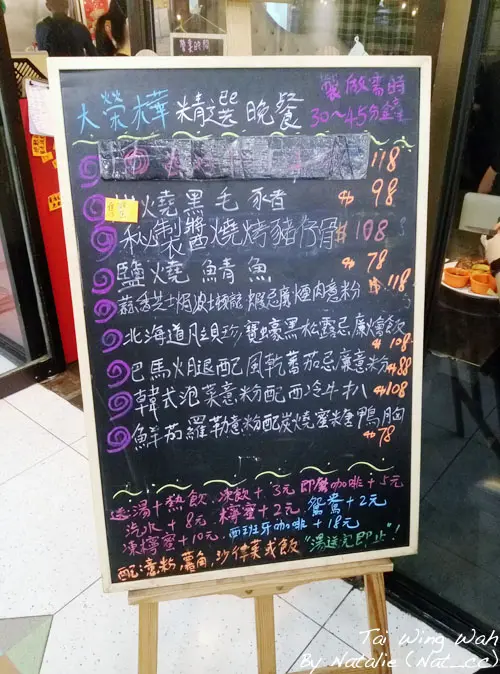 大榮樺 精選晚餐
製作需時
30~45分鐘
118
燒黑毛豬 $98
秘製醬燒烤豬仔骨 $108
鹽燒鯖魚 $78
蒜香芝士焗波士頓龍蝦忌廉煙肉意粉 $118
北海道帆立貝珍寶蠔黑松露忌廉燴飯 $108
巴馬火腿配風乾蕃茄忌廉意粉 $88
韓式泡菜意粉配西冷牛扒 $108
鮮茄羅勒意粉配炭燒蜜糖鴨胸 $78
送湯+熱飲, 凍飲+3元 即磨咖啡+5元
汽水+8元 檸蜜+2元 鴛鴦+2元
凍檸蜜+10元 西班牙咖啡+18元
配:意粉,薯角,沙律菜或飯 "湯送完即止"!
Tai Wing Wah
By Natalie (Nat_cc)